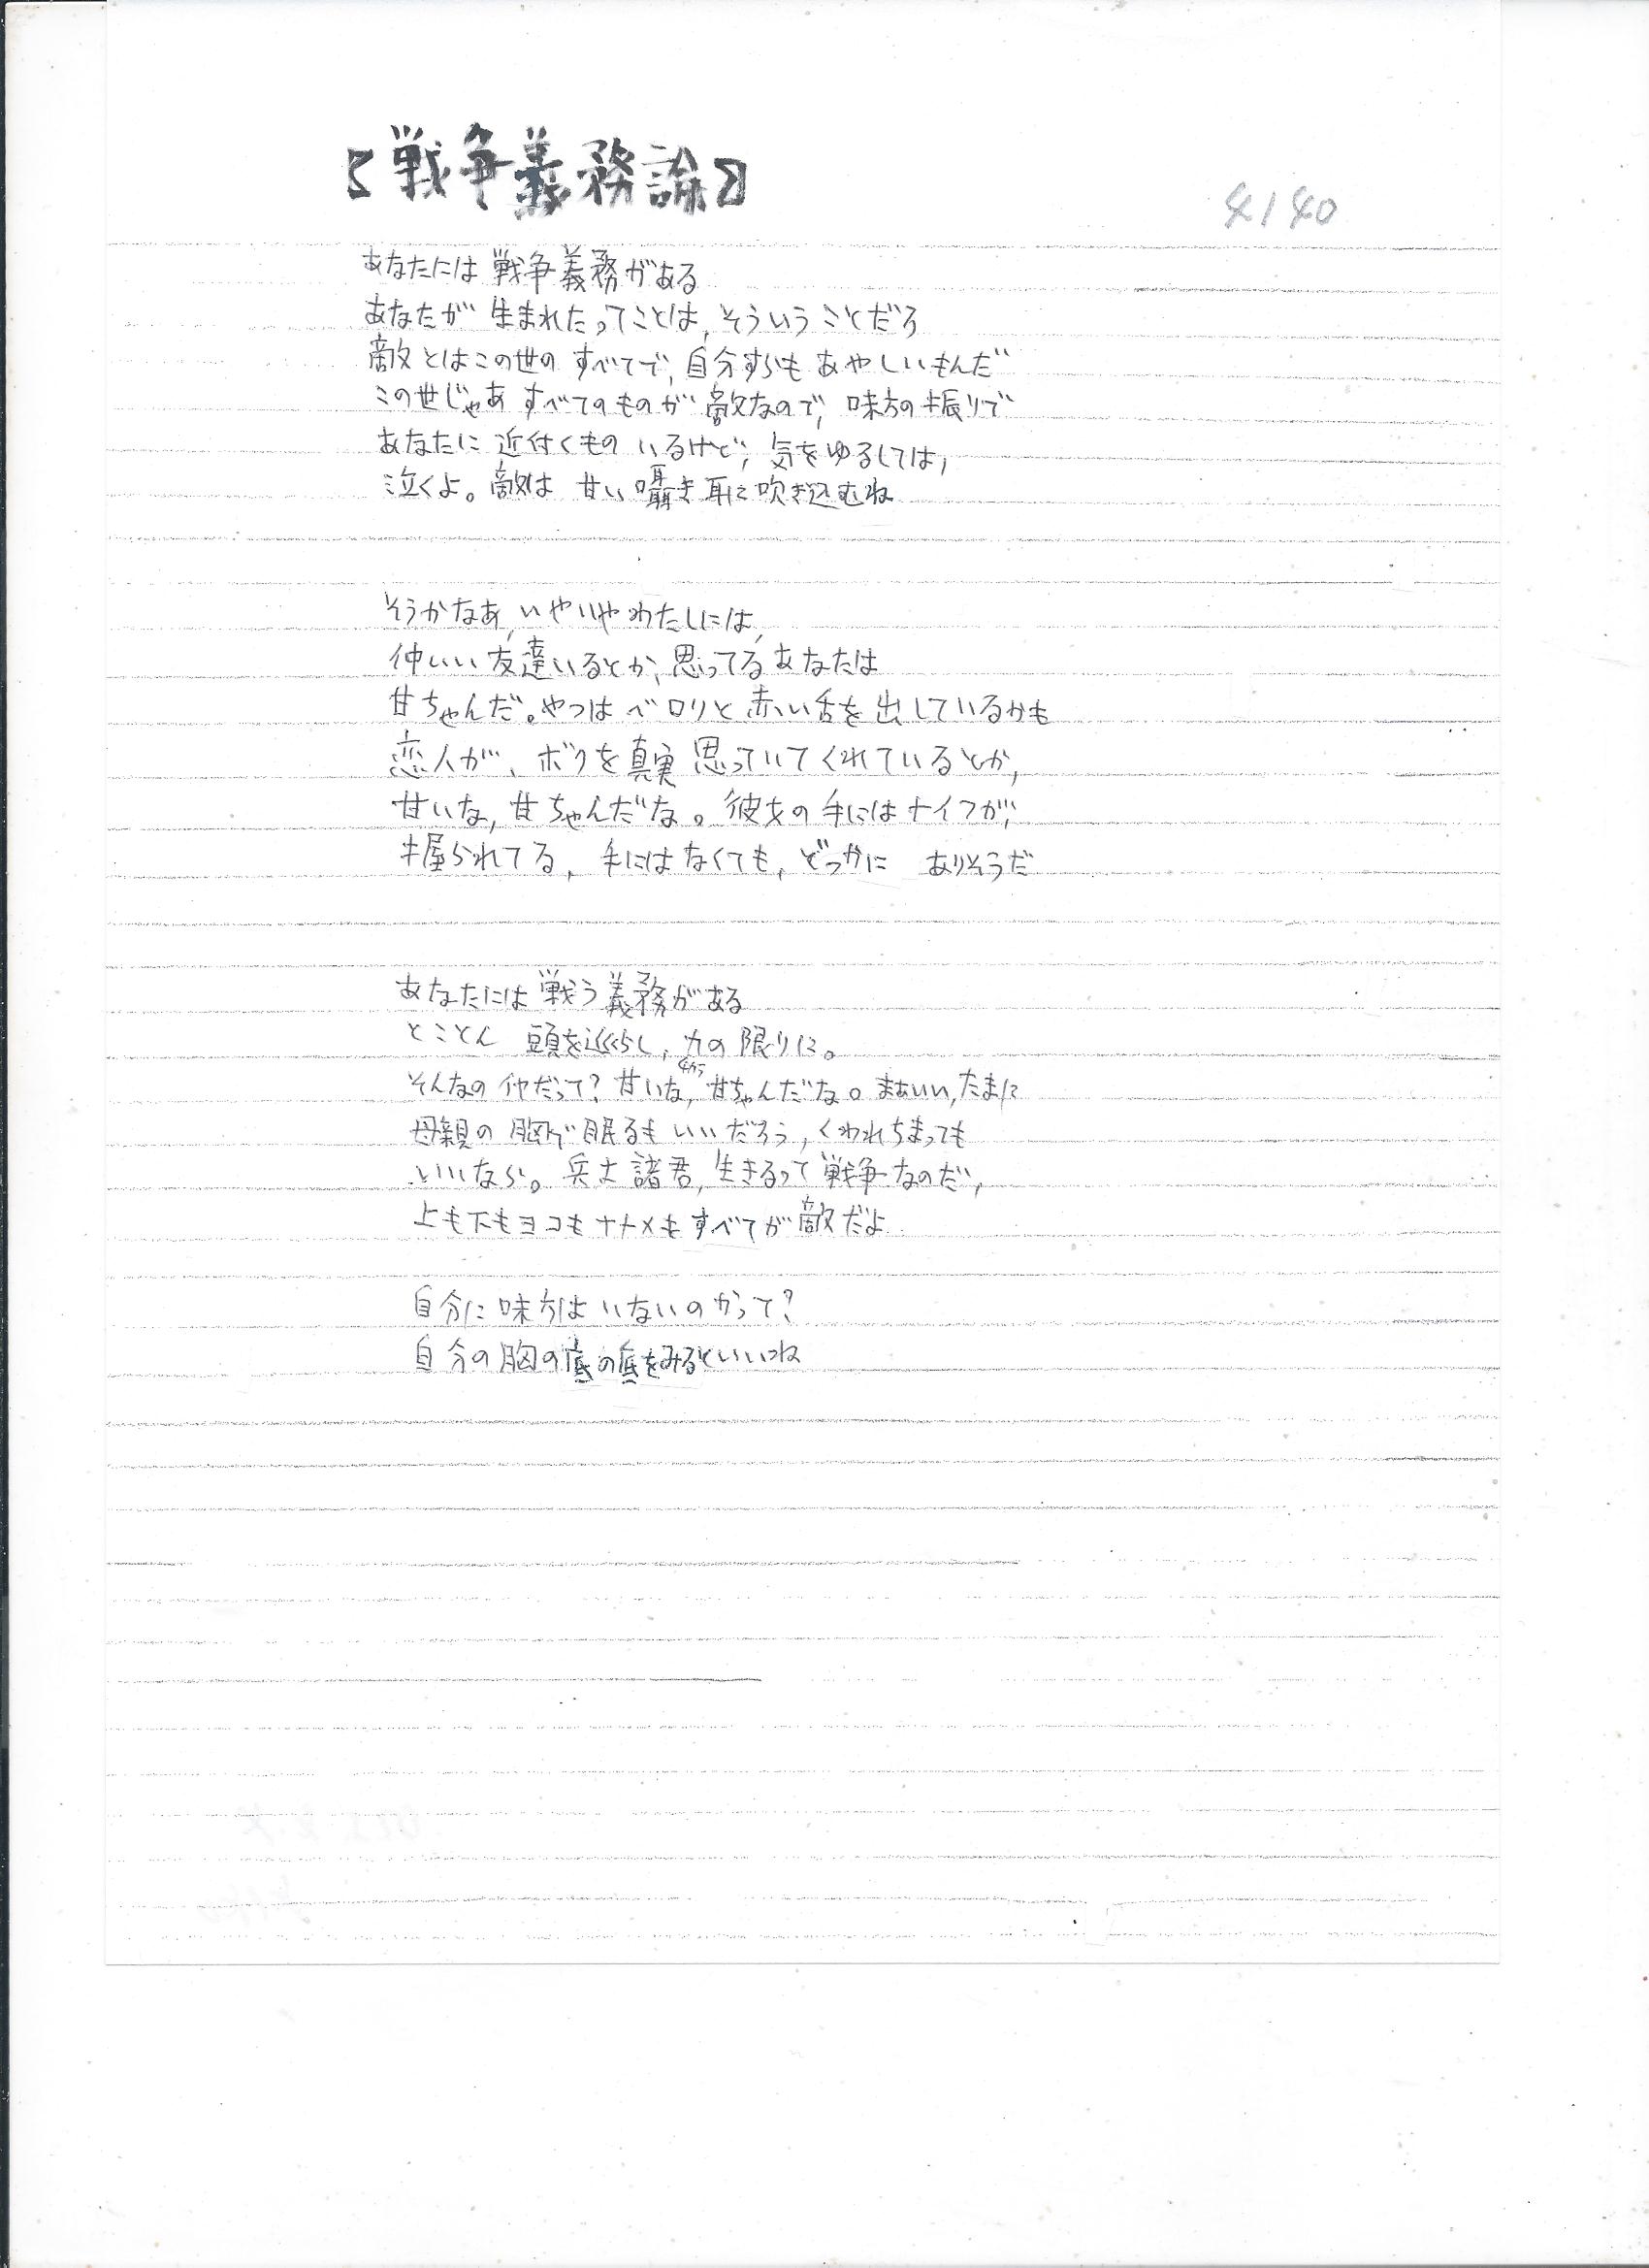 【戦争義務論】
4140
あなたには 戦争義務がある
あなたが 生まれたってことは, そういうことだろ
敵とはこの世の すべてで, 自分すらも あやしいもんだ
この世じゃあ すべてのものが 敵なので, 味方の振りで
あなたに 近付くもの いるけど, 気をゆるしては,
泣くよ。敵は 甘い囁き 耳に吹き込むね
そうかなあ, いやいやわたしには,
仲いい友達いるとか, 思ってるあなたは
甘ちゃんだ。やつは ベロリと 赤い舌を出しているかも
恋人が, ボクを真実 思っていてくれているとか,
甘いな, 甘ちゃんだな。彼女の手にはナイフが,
握られてる, 手にはなくても, どっかに ありそうだ
あなたには 戦う義務がある
とことん 頭を巡らし, 力の限りに。
チカラ
そんなの イヤだって? 甘いな, 甘ちゃんだな。まぁいい, たまに
母親の 胸で眠るも いいだろう, くわれちまっても
いいなら。兵士諸君, 生きるって 戦争なのだ,
上も下もヨコもナナメも すべてが敵だよ
自分に味方は いないのかって?
自分の胸の底の底をみるといいね